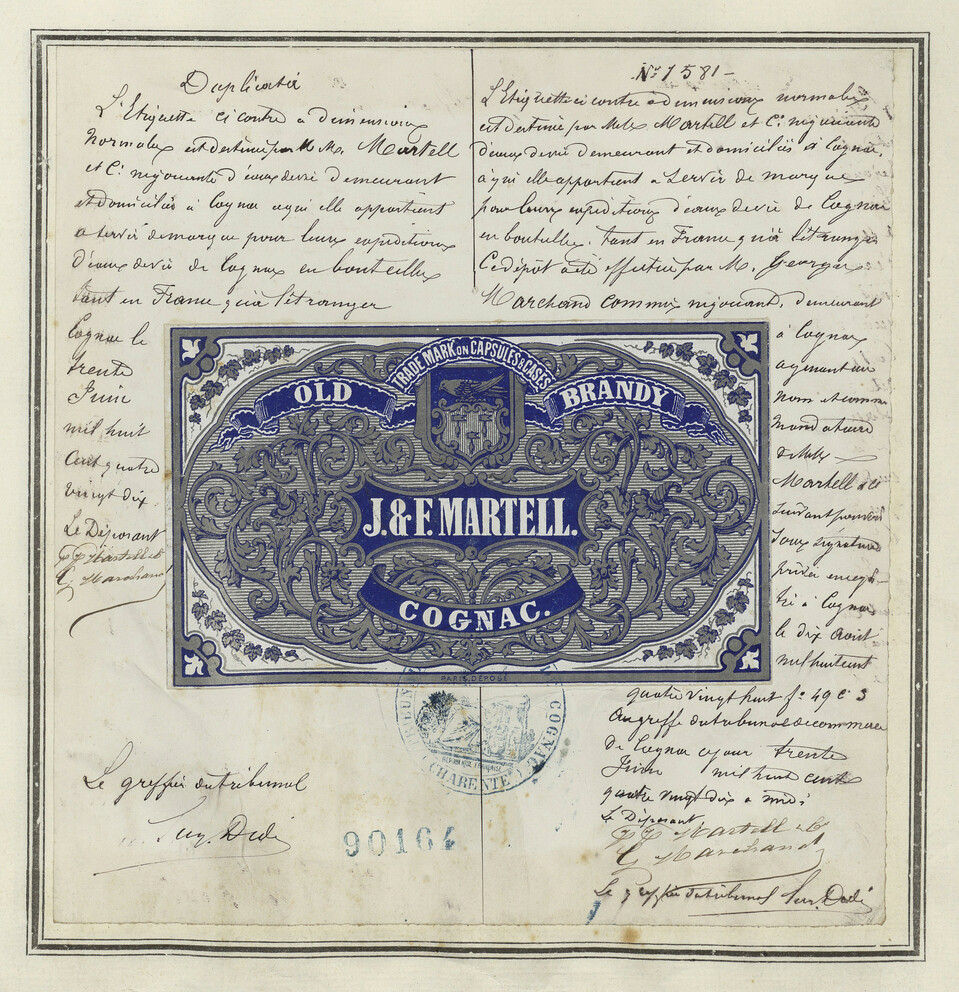 Duplicata
L'Etiquette ci contre a dimensions
normales est destinée par M. M. Martell
et Cie négociants d'eaux de vie demeurant
et domiciliés à Cognac a qui elle appartient
a servir de marque pour leurs expéditions
d'eaux de vie de Cognac en bouteilles
tant en France qu'à l'étranger
Cognac le
trente
Juin
mil huit
cent quatre
vingt dix
Le Déposant
JF Martell & Co
G. Marchand
Le greffier du tribunal
No 1581 -
L'Etiquette ci contre a dimensions normales
est destinée par MM. Martell et Cie négociants
d'eaux de vie demeurant et domiciliés à Cognac,
à qui elle appartient a servir de marque
pour leurs expéditions d'eaux de vie de Cognac
en bouteilles, tant en France qu'à l'étranger
Ce dépôt a été effectué par M. Georges
Marchand commis négociant, demeurant
à Cognac
agissant au
nom et comme
mandataire
de MM.
Martell & Co
suivant pouvoir
sous signature
privée enregis-
tré à Cognac
le dix Août
mil huit cent
quatre vingt huit fo 49 c 3
Au greffe du tribunal de commerce
de Cognac ce jour trente
Juin mil huit cent
quatre vingt dix a midi
Le Déposant
JF Martell & Co
G. Marchand
Le greffier du tribunal
TRADE MARK ON CAPSULES & CASES
OLD BRANDY
J. & F. MARTELL.
COGNAC.
PARIS. DÉPOSÉ
COGNAC
REPUBLIQUE FRANÇAISE
(CHARENTE)
90164